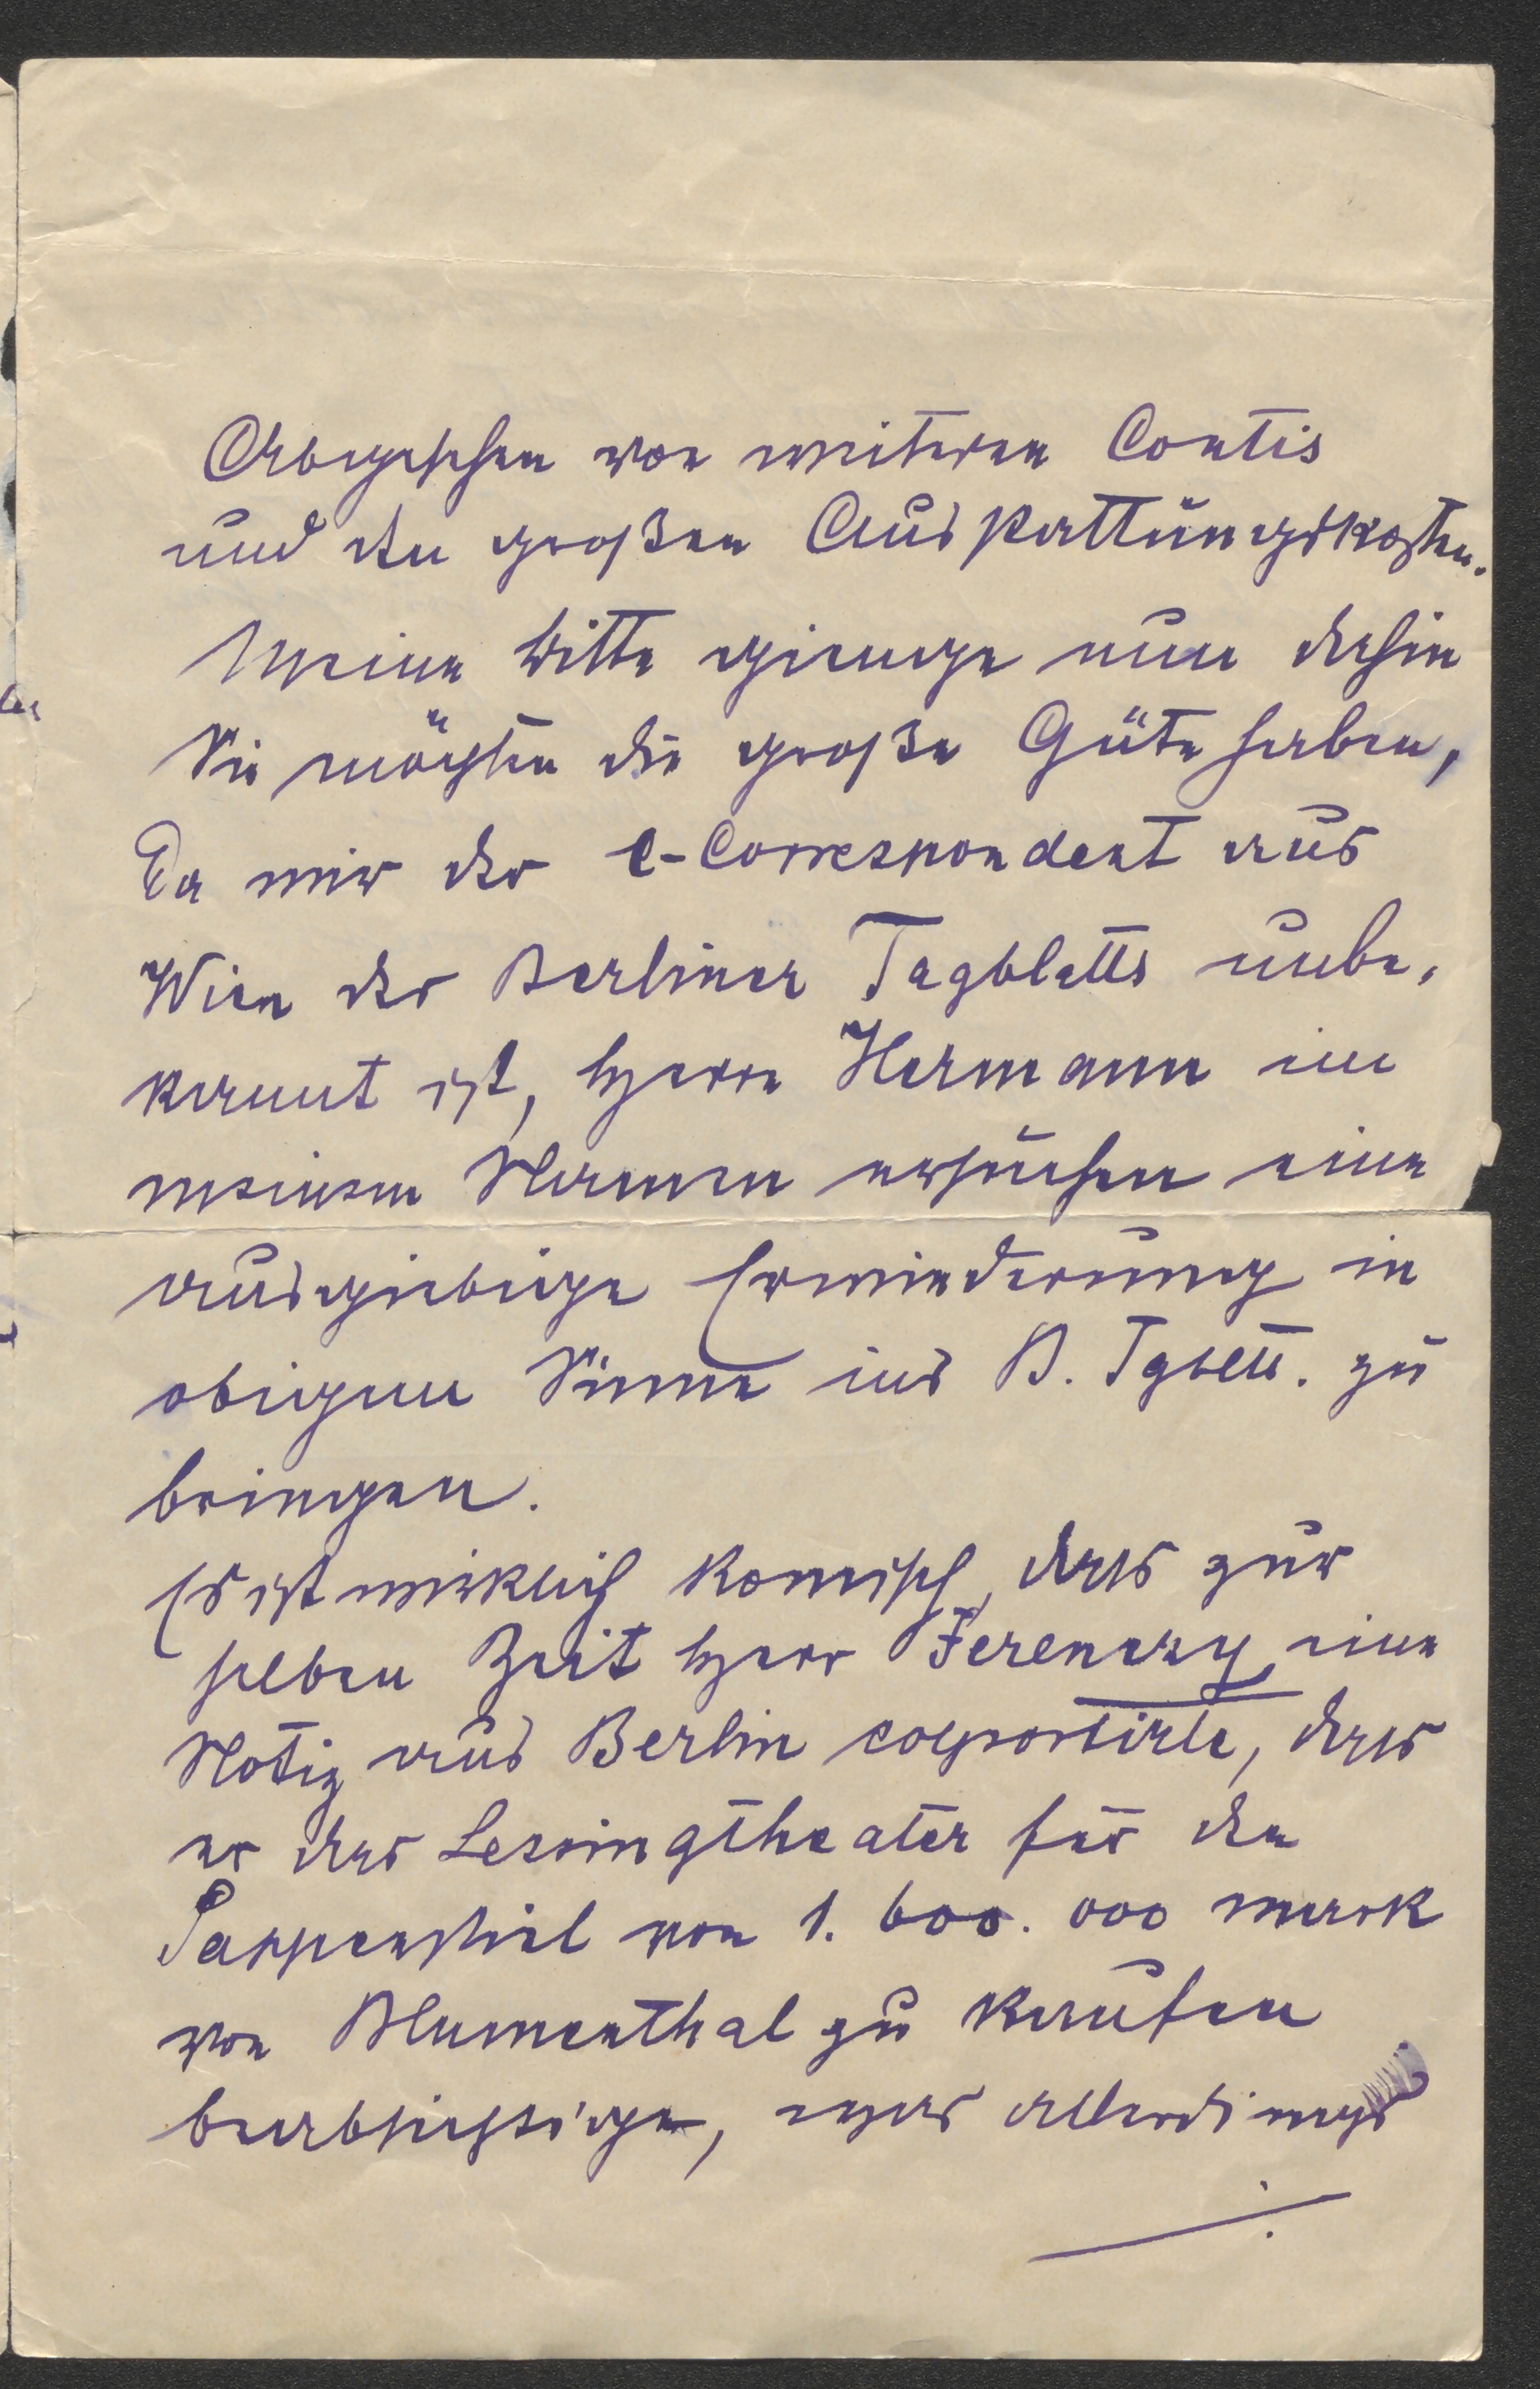 Abgesehen von weiteren Contis
und den großen Ausstattungskosten.
Meine Bitte gienge nun dahin
Sie möchten die große Güte haben,
Da mir der C-Correspondent aus
Wien des Berliner Tagblatts unbe-
kannt ist, Herrn Hermann in
meinem Namen ersuchen eine
ausgiebige Erwiderung in
obigem Sinne ins B. Tgbltt. zu
bringen.
Es ist wirklich komisch, dass zur
selben Zeit Herr Ferenczy eine
Notiz aus Berlin colportirte, dass
er das Lessingtheater für den
Pappenstiel von 1.600.000 Mark
von Blumenthal zu kaufen
beabsichtige, was allerdings